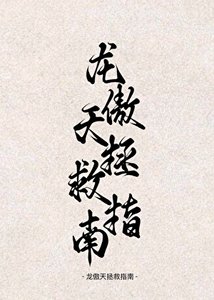 龙傲天拯救指南
- 龙傲天拯救指南 -